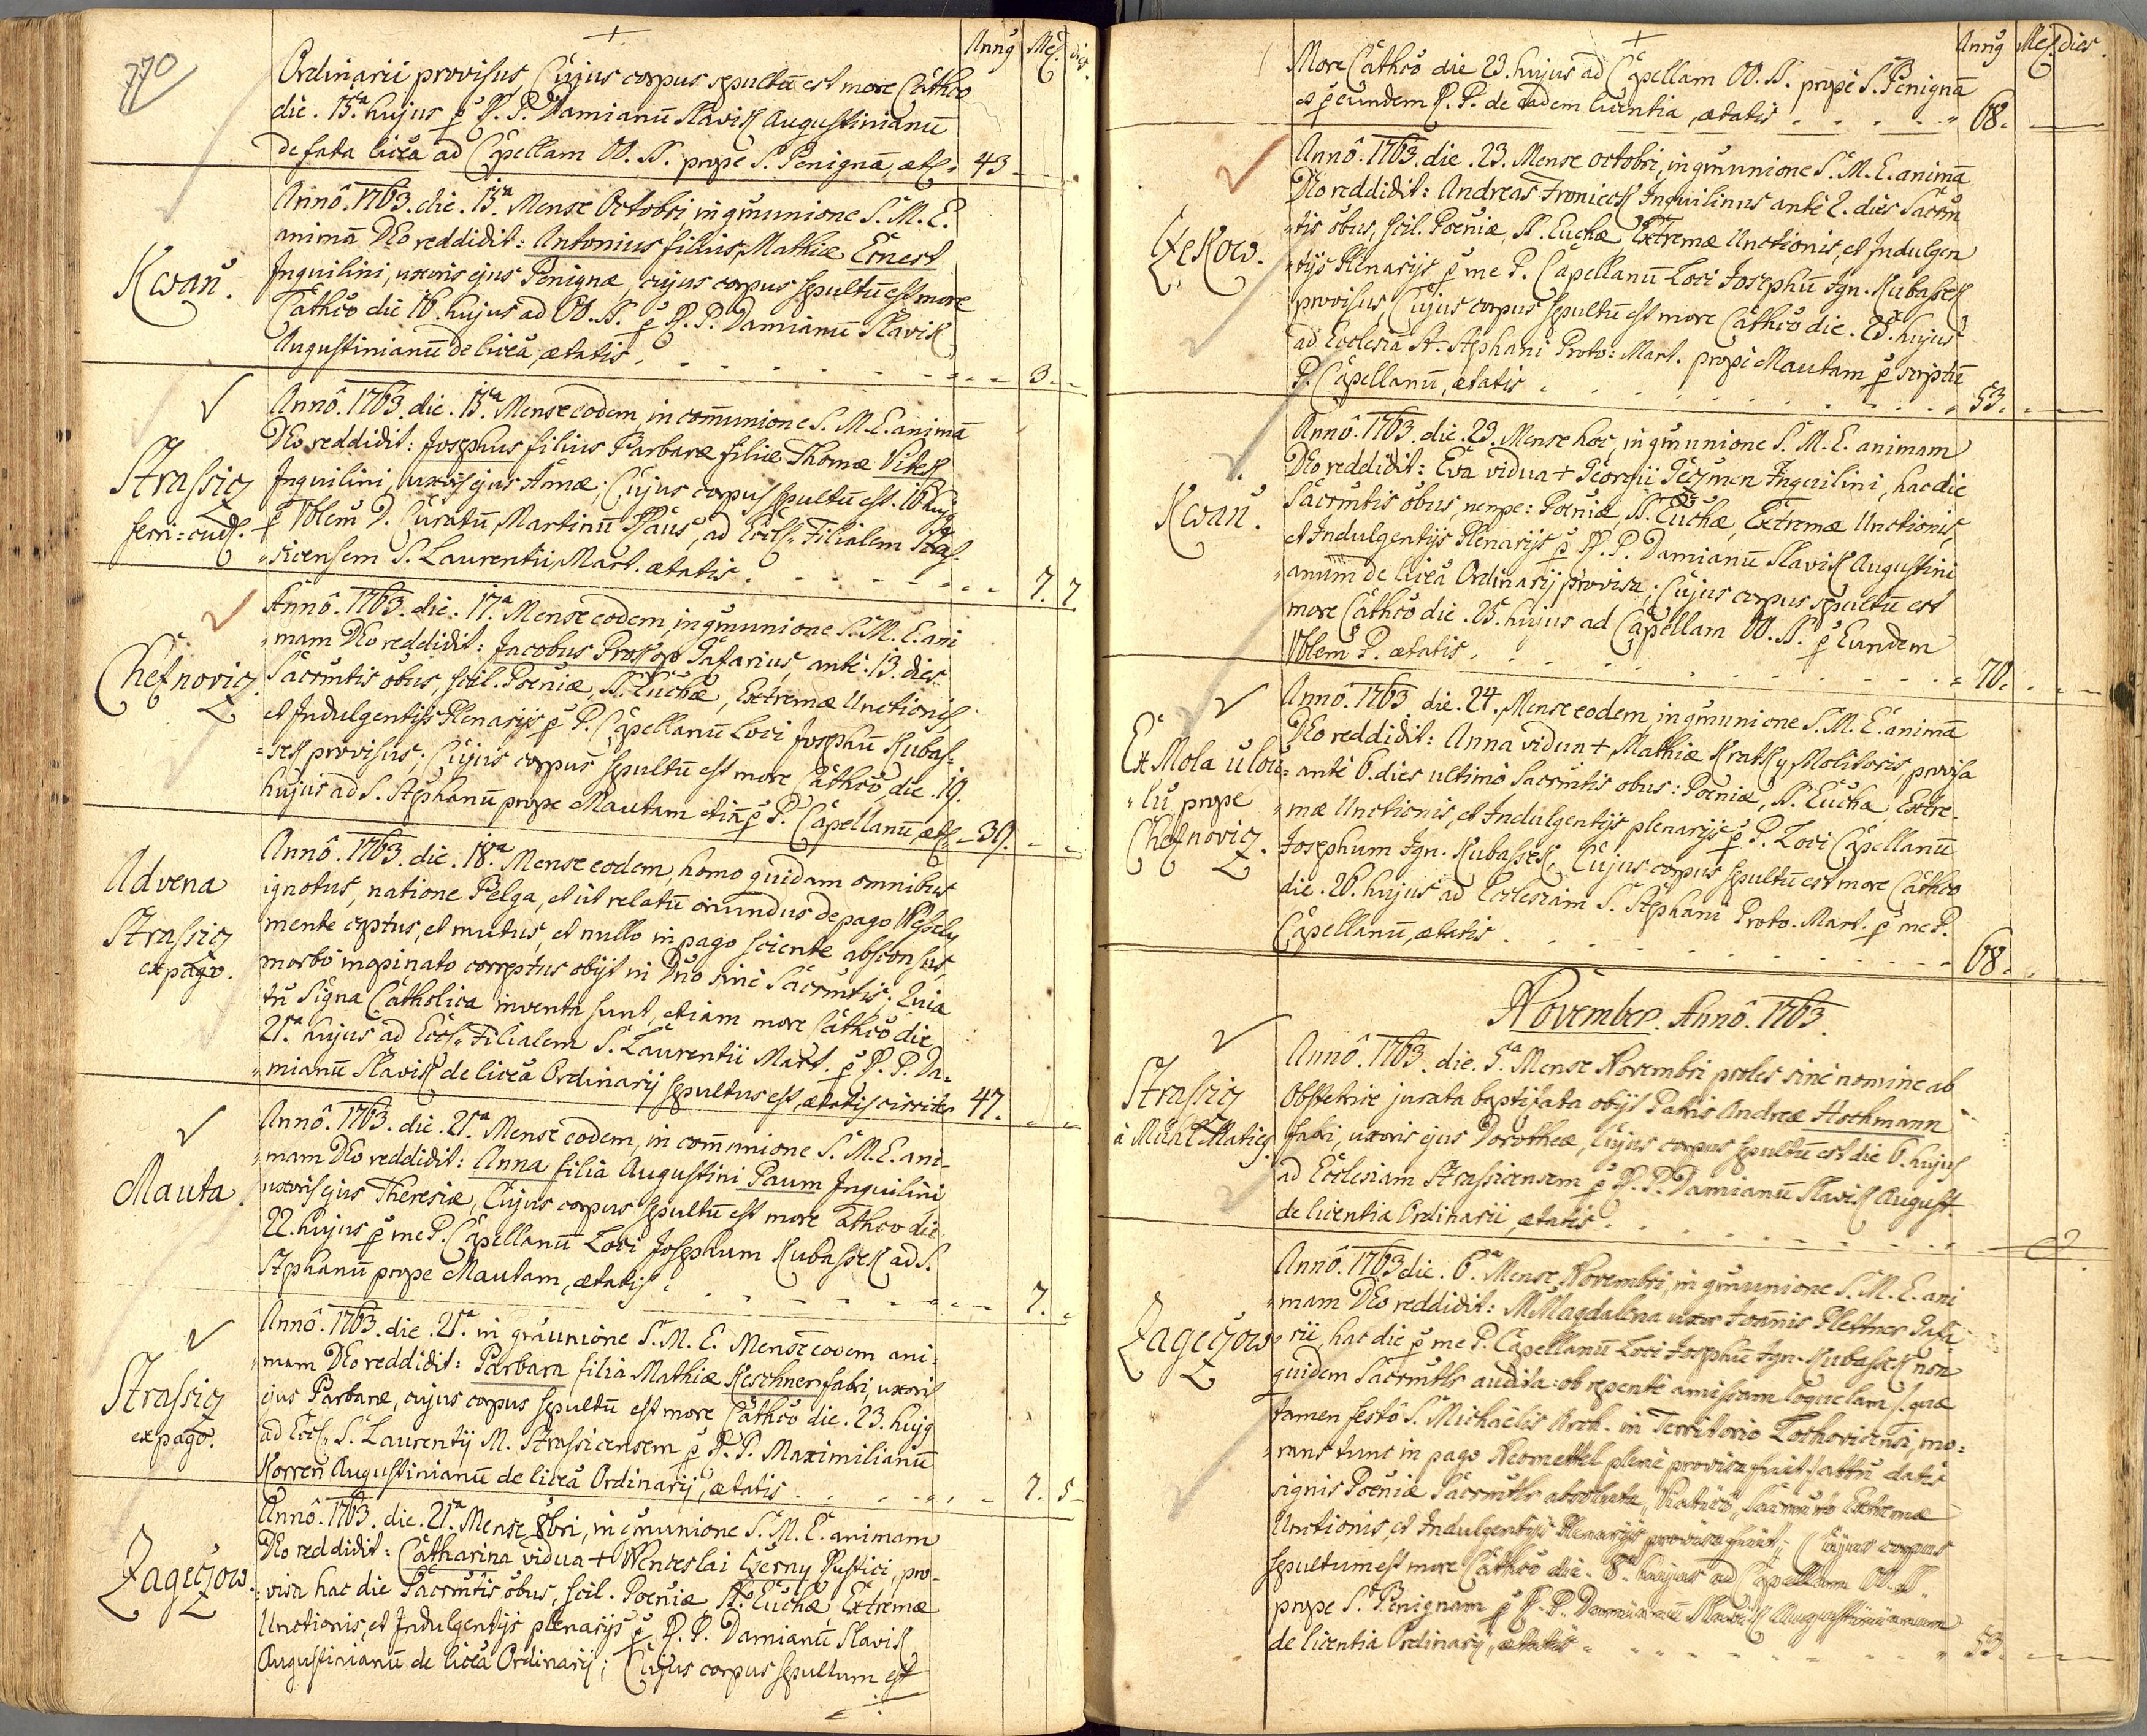 770
+
Annꝰ Mẽs. dies.
Ordinarii provisus, Cujus corpus sepultũ est more Cathco
die. 15ª hujus p̃ R. P. Damianũ Slavik Augustinianũ
de fata licẽa ad Capellam OO. SS. prope S. Benignã, æts. 43
Kwaň.
Annô. 1763. die. 15ª Mense Octobri, in gmunione S. M. E.
animã Deo reddidit: Antonius filius Mathiæ Ernest
Inquilini, uxoris ejus Benignæ, cujus corpus sepultũ est more
Cathco die 16. hujus ad OO. SS. p̃ R. P. Damianũ Slavik
Augustinianũ de licẽa, ætatis. 3.
Strassicz
ferri=cud.
Annô. 1763. die. 15ª Mense eodem, in com̃unione S. M. E. animã
Deo reddidit: Josephus filius Barbaræ filiæ Thomæ Vitek
Inquilini, uxoris ejus Annæ; Cujus corpus sepultũ est. 16 hujꝰ
p̃ Vblem D. Curatũ, Martinũ Paus, ad Eccl. Filialem Stras-
sicensem S. Laurentii, Mart. ætatis. 7. 7
Chesnovicz.
Annô. 1763. die. 17ª Mense eodem, in gmunione S. M. E. ani
mam Deo reddidit: Jacobus Prokop Pafarius, ante. 13. dies
Sacrmtis õbus, scil. Pœniæ, SS. Euchæ, Extremæ Unctionis,
et Indulgentijs Plenarijs p̃ P. Capellanũ Loci Josephũ Kubas-
sek provisus, Cujus corpus sepultũ est more Cathco, die. 19.
hujus ad S. Stephanũ prope Mautam etiã p̃ P. Capellanũ, æts. 39.
Advena
Strassicz
ex pago.
Annô. 1763. die. 18ª Mense eodem, homo quidam omnibus
ignotus, natione Belga, et ut relatũ oriundus de pago Wessely
mente captus, et mutus, et nullo in pago sciente absconsus,
morbo inopinato correptus obijt in Dño sine Sacrmtis; Quia
tñ Signa Catholica inventa sunt, etiam more Cathco die
21ª hujus ad Eccl. Filialem S. Laurentii Mart. p̃ R. P. Da-
mianũ Slavik de licẽa Ordinarij sepultus est, ætatis circiter 47.
Mauta.
Annô. 1763. die. 21ª Mense eodem, in com̃unione S. M. E. ani-
mam Deo reddidit: Anna filia Augustini Paum Inquilini
uxoris ejus Theresiæ, Cujus corpus sepultũ est more Cathco die
22. hujus p̃ me P. Capellanũ Loci Josephum Kubassek ad S.
Stephanũ prope Mautam, ætatis. 7.
Strassicz
ex pago.
Annô. 1763. die. 21ª in gmunione S. M. E. Mense eodem ani-
mam Deo reddidit: Barbara filia Mathiæ Keschner fabri, uxoris
ejus Barbaræ, cujus corpus sepultũ est more Cathco die. 23. hujꝰ
ad Eccl. S. Laurentij M. Strassicensem p̃ R. P. Maximilianũ
Korren Augustinianũ de licẽa Ordinarij, ætatis. 2. 5
Zageczow.
Annô. 1763. die. 21ª Mense 8bri, in gmunione S. M. E. animam
Deo reddidit: Catharina vidua + Wenceslai Czerny Rustici, pro-
visa hac die Sacrmtis õbus, scil. Pœniæ SS. Euchæ, Extremæ
Unctionis, et Indulgentijs plenarijs p̃ R. P. Damianũ Slavik
Augustinianũ de licẽa Ordinarij; Cujus corpus sepultum est
+
Annꝰ Mẽs. dies.
More Cathco die 23. hujus ad Capellam OO. SS. prope S. Benignã
et p̃ eundem R. P. de eadem licentia, ætatis 68.
Czekow.
Annô. 1763. die. 23. Mense octobri, in gmunione S. M. E. animã
Deo reddidit: Andreas Froniek Inquilinus ante 2. dies Sacrm
tis õbus, scil. Pœniæ, SS. Euchæ, Extremæ Unctionis, et Indulgen
tijs Plenarijs, p̃ me P. Capellanũ Loci Josephũ Ign. Kubassek
provisus, Cujus corpus sepultũ est more Cathco die. 25. hujus
ad Ecclesiã S. Stephani Proto: Mart. prope Mautam p̃ scriptũ
P. Capellanũ, ætatis 53.
Kwaň.
Annô. 1763. die. 23. Mense hoc, in gmunione S. M. E. animam
Deo reddidit: Eva vidua + Georgii Geczmen Inquilini, hac die
Sacrmtis õbus nempe: Pœniæ, SS. Euchæ, Extremæ Unctionis,
et Indulgentijs Plenarijs p̃ R. P. Damianũ Slavik Augustini
anum de licẽa Ordinarij provisa; Cujus corpus sepultũ est
more Cathco die. 25. hujus ad Capellam OO. SS. p̃ Eundem
Vblem P. ætatis. 70.
Ex Mola u lou
lu prope
Chesnovicz.
Annô. 1763 die. 24. Mense eodem, in gmunione S. M. E. animã
Deo reddidit: Anna vidua +, Mathiæ Kratky, Molitoris provisa
ante 6. dies ultimo Sacrmtis õbus: Pœniæ, SS. Eucha, Extre-
mæ Unctionis, et Indulgentijs plenarijs p̃ P. Loci Capellanũ
Josephum Ign. Kubassek, Cujus corpus sepultũ est more Cathco
die. 26. hujus ad Ecclesiam S. Stephani Proto. Mart. p̃ me P.
Capellanũ, ætatis 68.
November. Annô. 1763.
Strassicz
Annô. 1763. die. 5ª Mense Novembri proles sine nomine ab
Obstetrice jurata baptizata obijt Patris Andreæ Hochmann
fabri, uxoris ejus Dorotheæ, Cujus corpus sepultũ est die 6. hujus
ad Ecclesiam Strassicensem p̃ R. P. Damianũ Slavik August.
de licentia Ordinarii, ætatis.
Zageczow
Annô. 1763 die. 6ª Mense Novembri, in gmunione S. M. E. ani
mam Deo reddidit: M. Magdalena uxor Joannis Plettner Pafa-
rii, hac die p̃ me P. Capellanũ Loci Josephũ Ign. Kubassek non
quidem Sacrmtlr audita: ob repente amissam loquelam /: quæ
tamen festô S. Michaëlis Arch. in Territorio Tochovicensi, mo-
rans tunc in pago Neomettel plene provisa fuit :/ attñ datis
signis Pœniæ Sacrmtlr absoluta, Viatico, Sacramto Extremæ
Unctionis, et Indulgentijs Plenarijs provisa fuit; Cujus corpus
sepultum est more Cathco die. 8ª hujus ad Capellam OO. SS.
prope S. Benignam p̃ R. P. Damianũ Slavik Augustinianum
de licentia Ordinarij, ætatis 53.